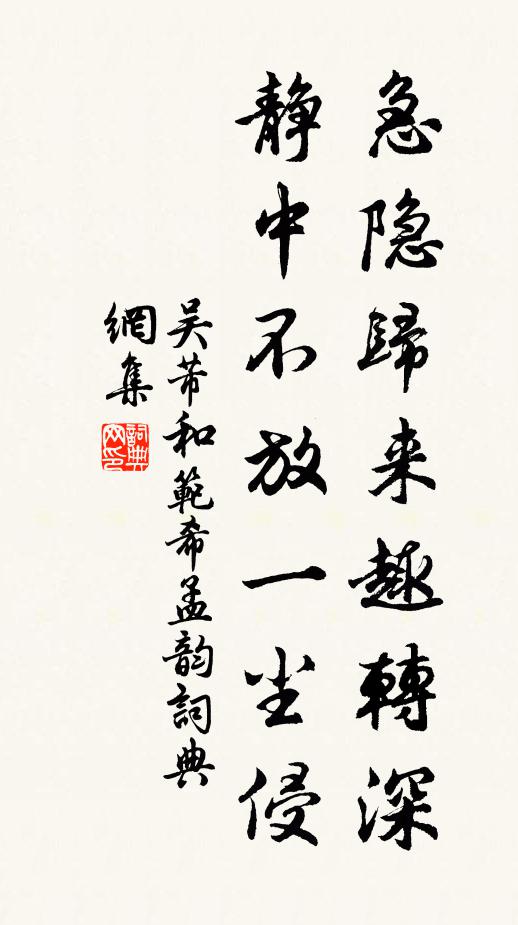 急隐歸来趣轉深
静中不放一尘侵
吴芾和範希孟韵詞典
網集
詞典
网印